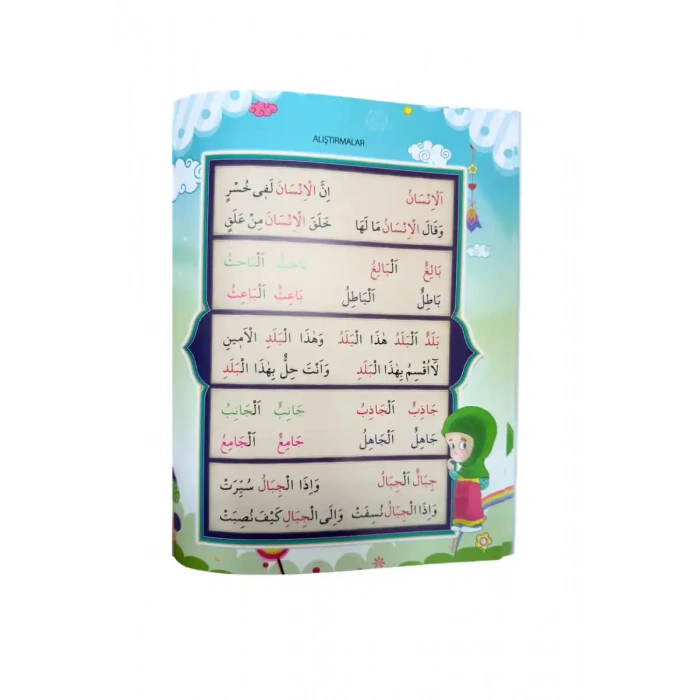 ALIŞTIRMALAR
اَلْاِنْسَانُ اِنَّ الْاِنْسَانَ لَفٖى خُسْرٍ
وَقَالَ الْاِنْسَانُ مَا لَهَا خَلَقَ الْاِنْسَانَ مِنْ عَلَقٍ
بَالِغٌ اَلْبَالِغُ بَاحِثٌ اَلْبَاحِثُ
بَاطِلٌ اَلْبَاطِلُ بَاعِثٌ اَلْبَاعِثُ
بَلَدٌ اَلْبَلَدُ هٰذَا الْبَلَدُ وَهٰذَا الْبَلَدِ الْاَمٖينِ
لَٓا اُقْسِمُ بِهٰذَا الْبَلَدِ وَاَنْتَ حِلٌّ بِهٰذَا الْبَلَدِ
جَاذِبٌ اَلْجَاذِبُ جَانِبٌ اَلْجَانِبُ
جَاهِلٌ اَلْجَاهِلُ جَامِعٌ اَلْجَامِعُ
جِبَالٌ اَلْجِبَالُ وَاِذَا الْجِبَالُ سُيِّرَتْ
وَاِذَا الْجِبَالُ نُسِفَتْ وَاِلَى الْجِبَالِ كَيْفَ نُصِبَتْ